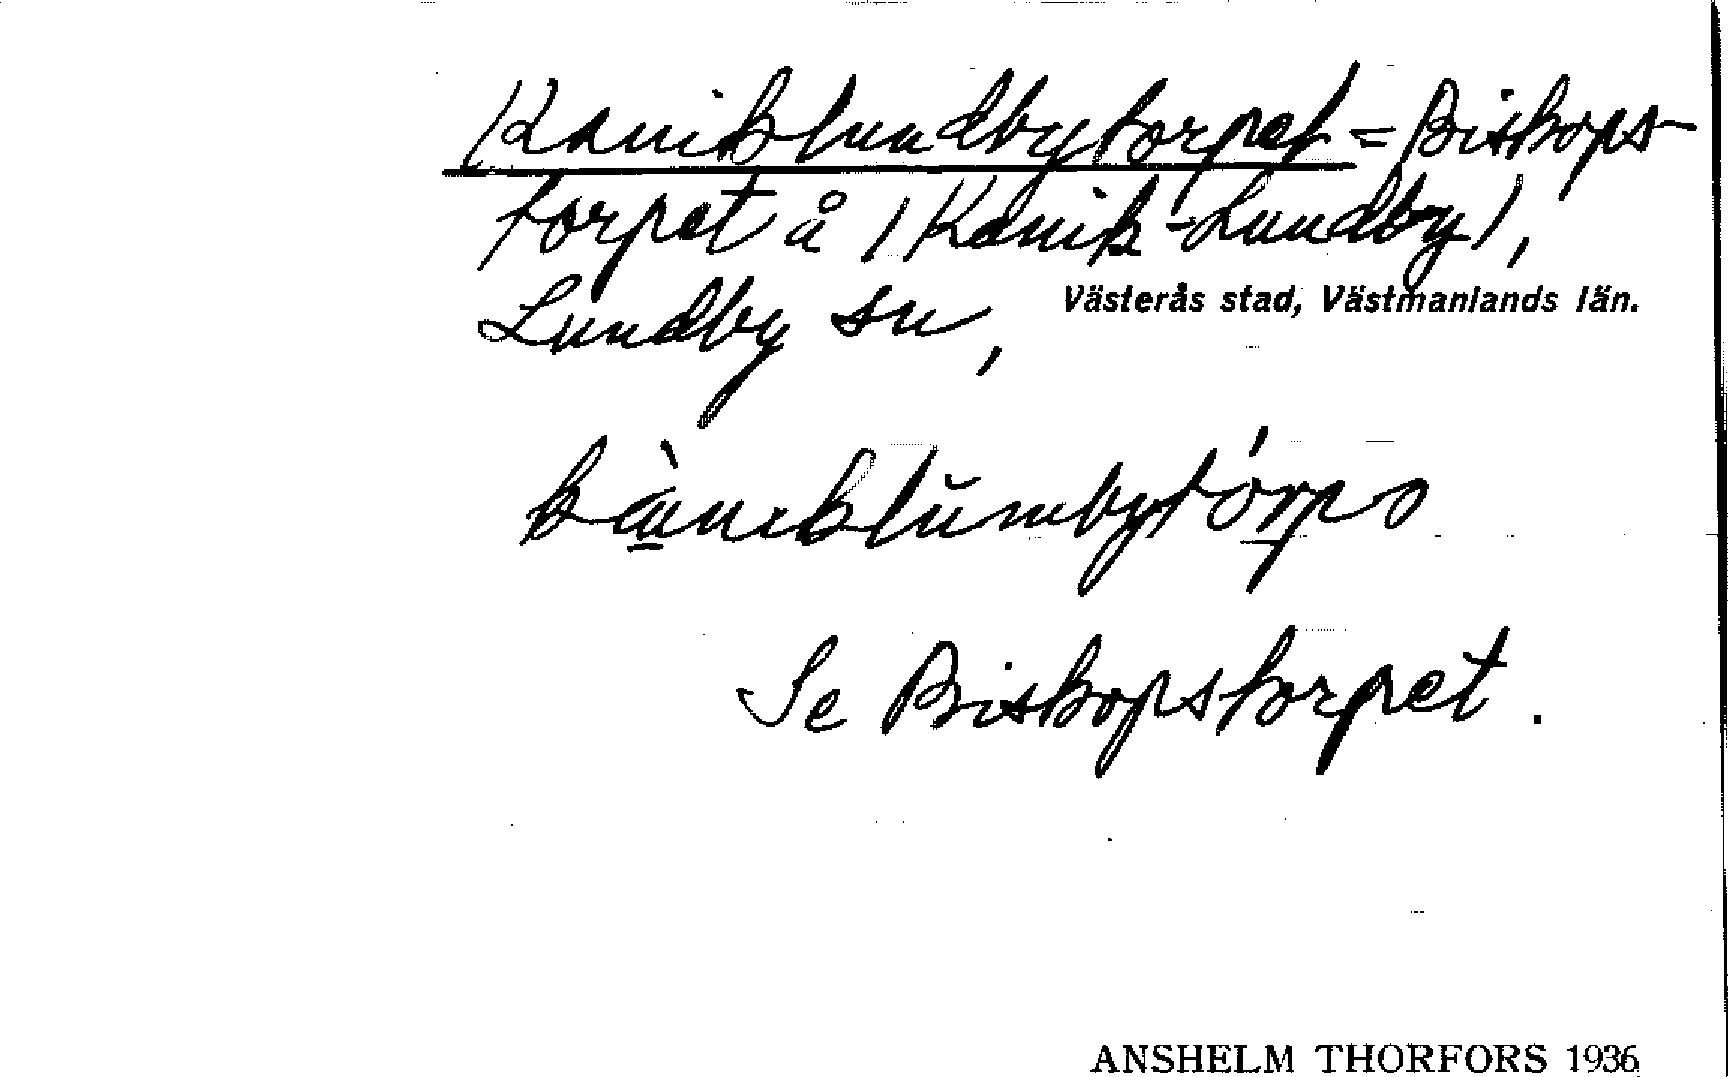 Kaniklundbytorpet = Biskops-
torpet å /Kanik-Lundby/,
Lundby sn, Västerås stad, Västmanlands län.
kàniklŭmbytórpə
Se Biskopstorpet.
ANSHELM THORFORS 1936